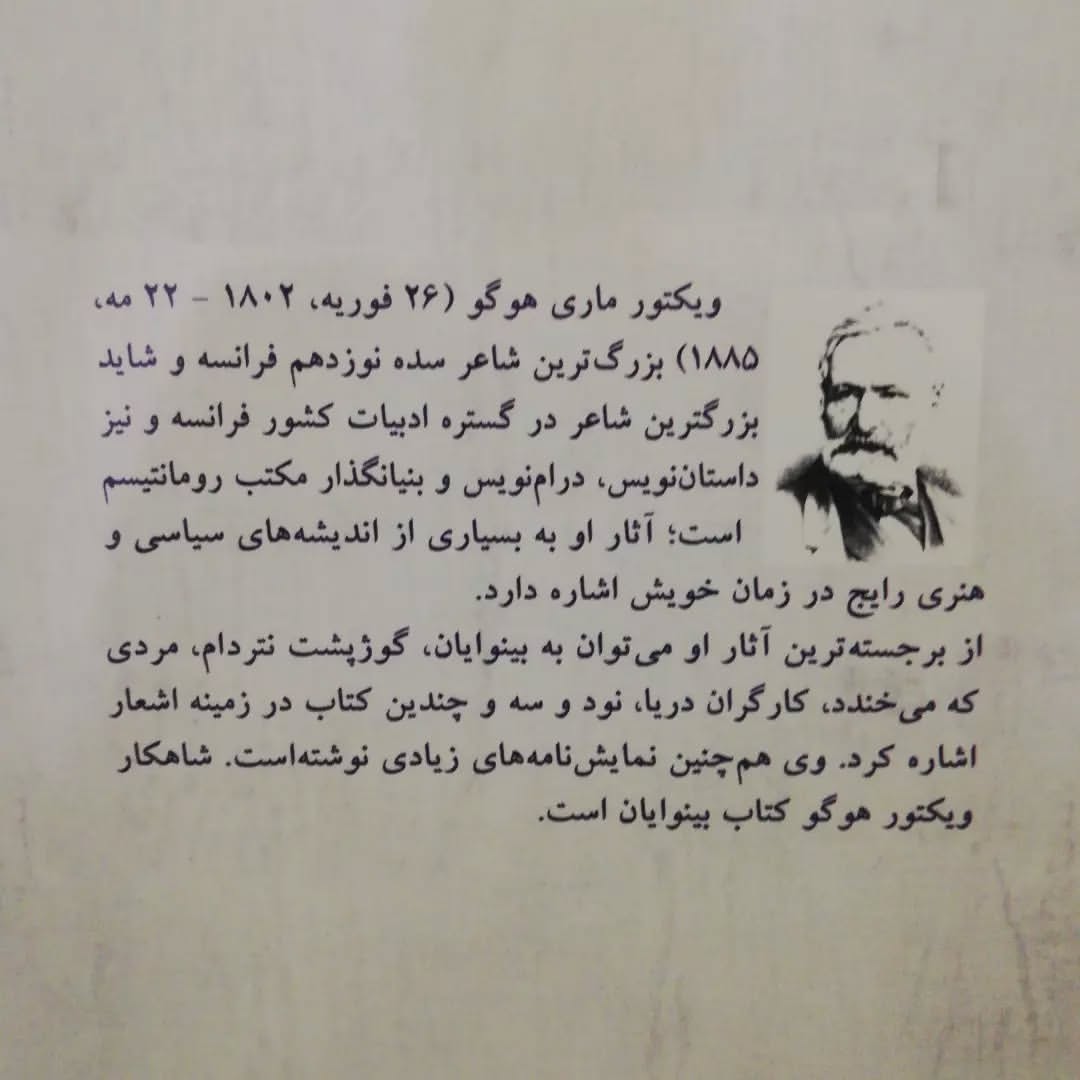 ویکتور ماری هوگو (۲۶ فوریه، ۱۸۰۲ - ۲۲ مه،
۱۸۸۵) بزرگ‌ترین شاعر سده نوزدهم فرانسه و شاید
بزرگترین شاعر در گستره ادبیات کشور فرانسه و نیز
داستان‌نویس، درام‌نویس و بنیانگذار مکتب رومانتیسم
است؛ آثار او به بسیاری از اندیشه‌های سیاسی و
هنری رایج در زمان خویش اشاره دارد.
از برجسته‌ترین آثار او می‌توان به بینوایان، گوژپشت نتردام، مردی
که می‌خندد، کارگران دریا، نود و سه و چندین کتاب در زمینه اشعار
اشاره کرد. وی هم‌چنین نمایش‌نامه‌های زیادی نوشته‌است. شاهکار
ویکتور هوگو کتاب بینوایان است.